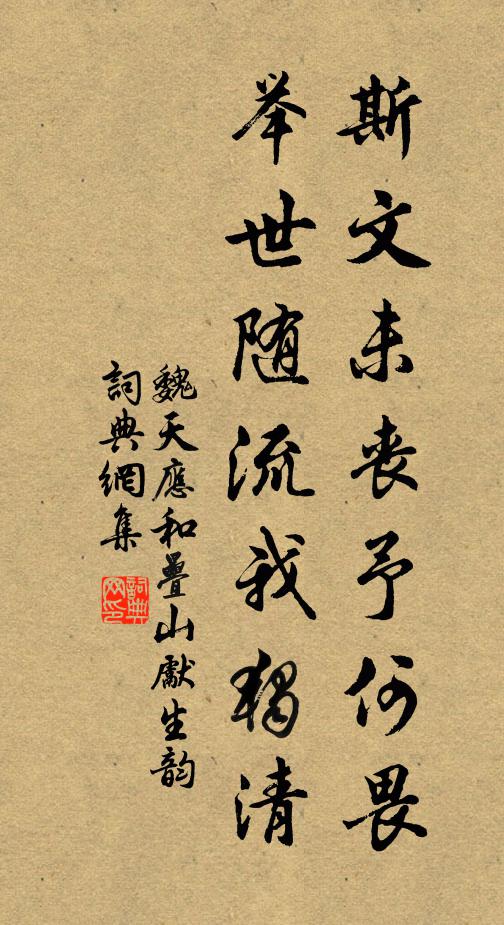 斯文未丧予何畏
举世随流我独清
魏天應和疊山獻生韵
詞典網集
詞典网印